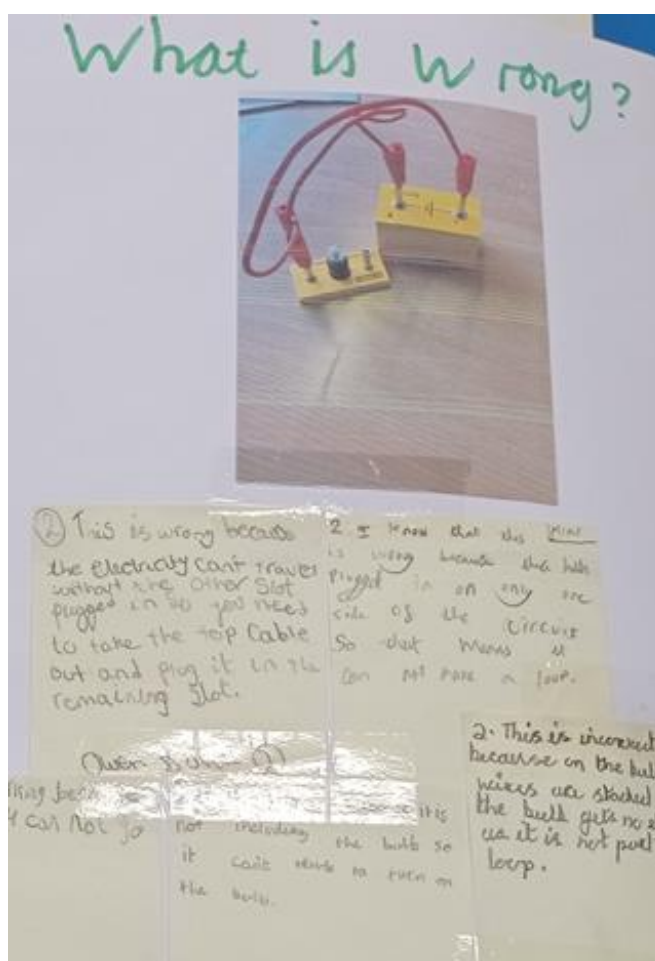 What is Wrong?
2 This is wrong because
the electricity cant travel
without the other slot
plugged in so you need
to take the top cable
out and plug it in the
remaining slot.
2. I know that this
is wrong because
plugged in on only one
side of the circuit
So that means it
can not make a loop.
2. This is incorrect
because on the bul
wires are stacked
the bulb gets no e
as it is not part
loop.
can not go
it is
not including the bulb so
it cant to turn on
the bulb.